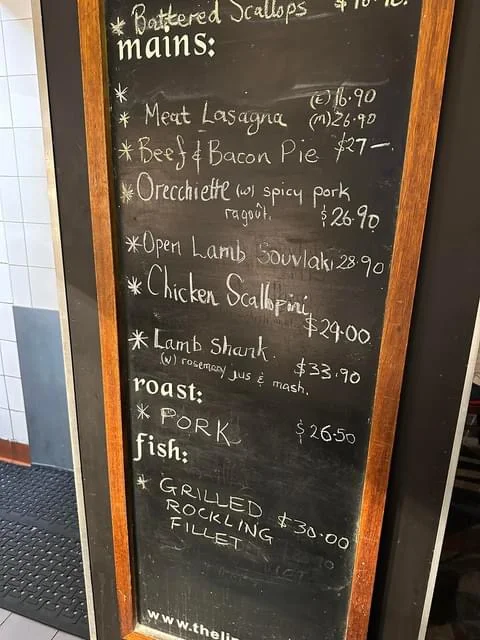 * Battered Scallops
mains:
*
* Meat Lasagna (E) 16.90
(M) 26.90
* Beef & Bacon Pie $27—
* Orecchiette (w) spicy pork
ragoût. $26.90
* Open Lamb Souvlaki 28.90
* Chicken Scallopini
$29.00
* Lamb Shank. $33.90
(w) rosemary jus & mash.
roast:
* PORK $26.50
fish:
* GRILLED
ROCKLING $30.00
FILLET